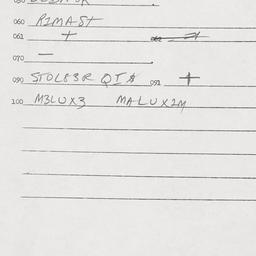 060 P1MAST
061 +
070 —
090 STOLB3R QI$ 091 +
100 M3LUX3 MALUX2M